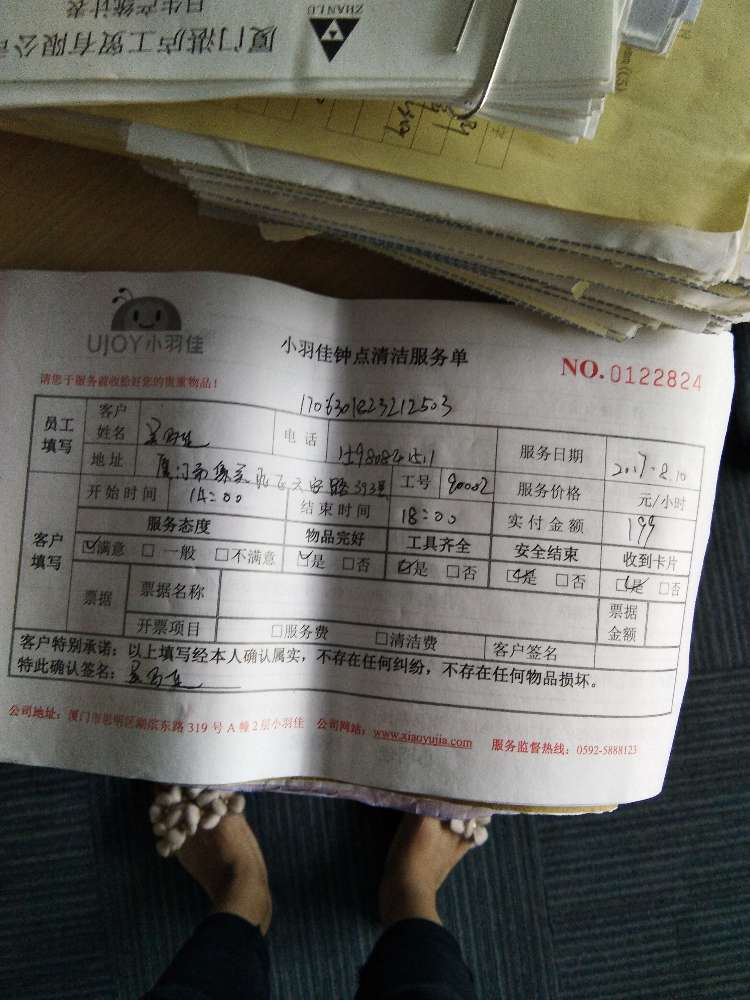 厦门湛卢工贸有限公司
日生产统计表
ZHANLU
UJOY小羽佳
小羽佳钟点清洁服务单
NO. 0122824
请您于服务前收拾好您的贵重物品！
1706301823212503
员工填写 客户姓名 电话 服务日期 2017.8.10
地址 厦门市集美 393号 工号 90002 服务价格 元/小时
客户填写 开始时间 14:00 结束时间 18:00 实付金额 199
服务态度 物品完好 工具齐全 安全结束 收到卡片
☑满意 □一般 □不满意 ☑是 □否 ☑是 □否 ☑是 □否 ☑是 □否
票据 票据名称 票据金额
开票项目 □服务费 □清洁费 客户签名
客户特别承诺：以上填写经本人确认属实，不存在任何纠纷，不存在任何物品损坏。
特此确认签名：
公司地址：厦门市思明区湖滨东路 319 号 A 幢 2 层小羽佳 公司网站：www.xiaoyujia.com 服务监督热线：0592-5888123